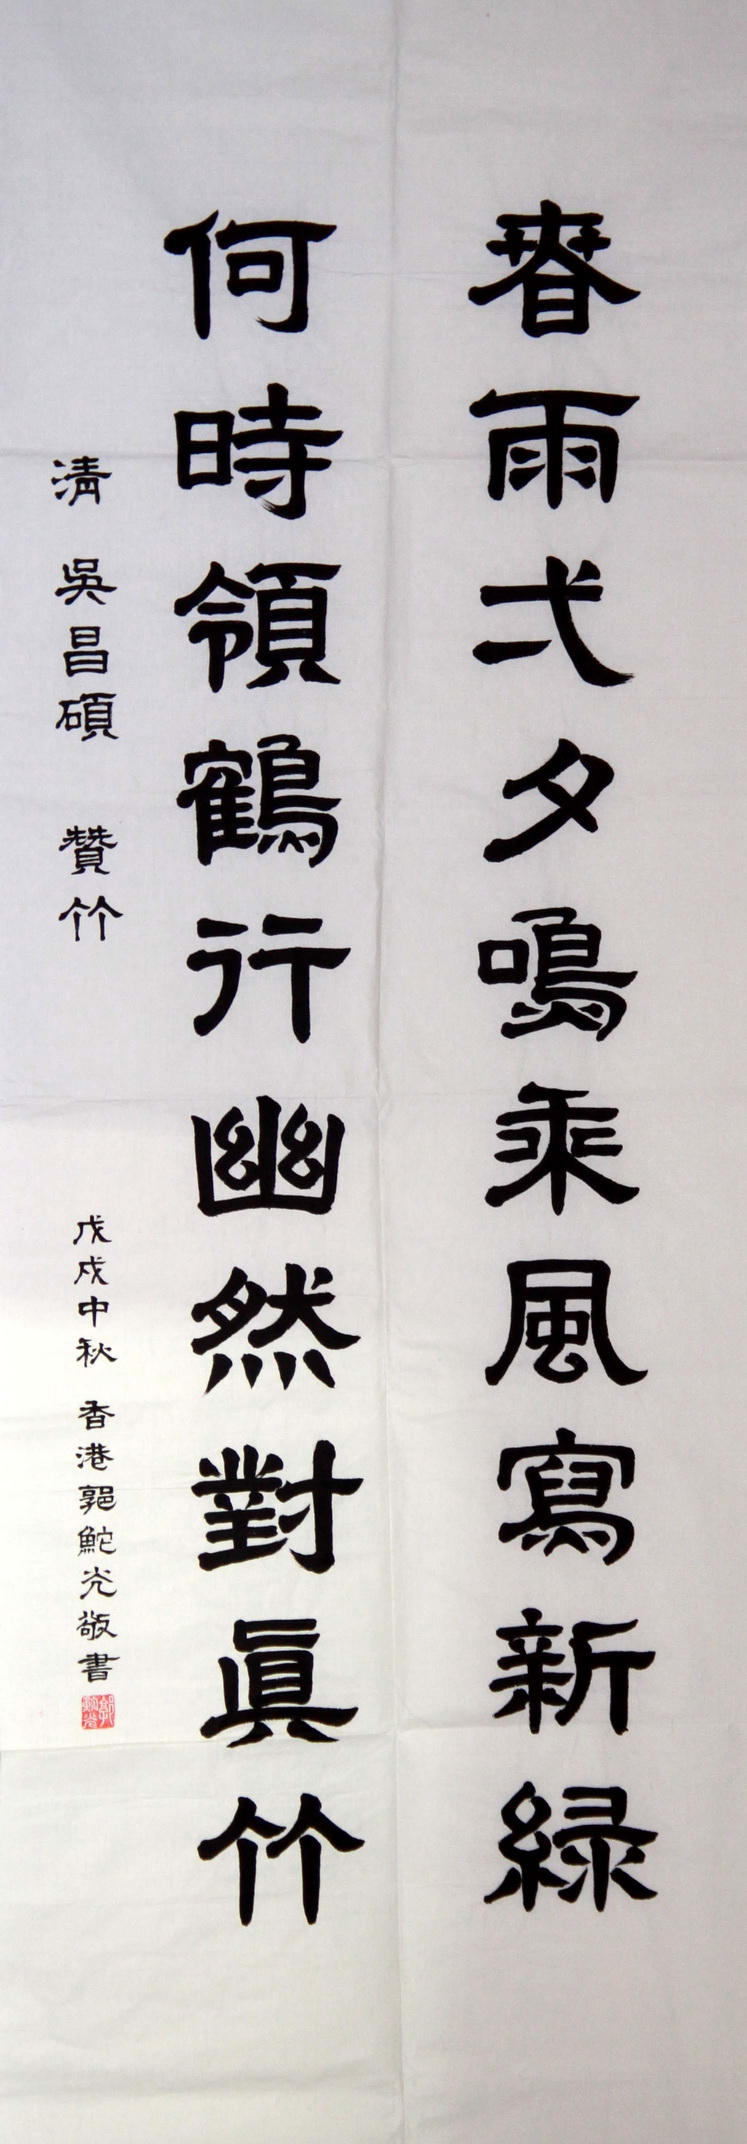 春雨弌夕鳴乘風寫新綠
何時領鶴行幽然對眞竹
清 吳昌碩 贊竹
戊戌中秋 香港郭鮀光敬書